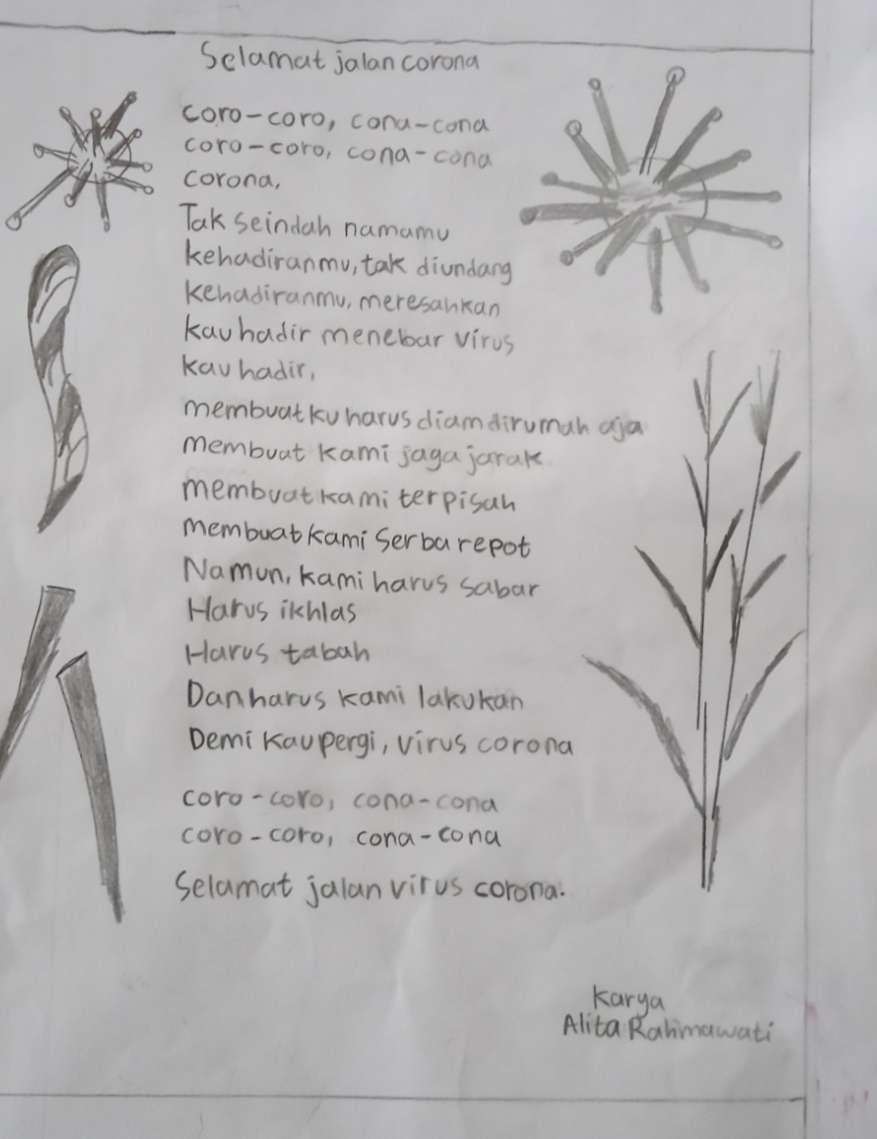 Selamat jalan corona
coro-coro, cona-cona
coro-coro, cona-cona
corona,
Tak seindah namamu
kehadiranmu, tak diundang
kehadiranmu, meresahkan
kau hadir menebar virus
kau hadir,
membuatku harus diam dirumah aja
membuat kami jaga jarak
membuat kami terpisah
membuat kami serba repot
Namun, kami harus sabar
Harus ikhlas
Harus tabah
Dan harus kami lakukan
Demi kau pergi, virus corona
coro-coro, cona-cona
coro-coro, cona-cona
Selamat jalan virus corona.
Karya
Alita Rahmawati